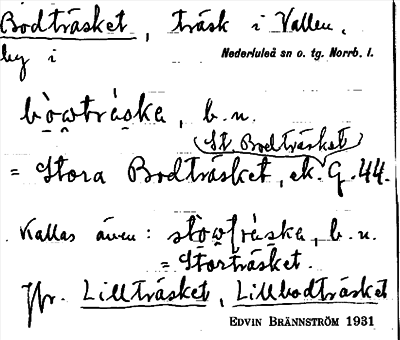 Bodträsket, träsk i Vallen,
by i Nederluleå sn o. tg. Norrb. l.
bò̤wtràska, b. u.
St. Bodträsket
= Stora Bodträsket, ek. G. 44.
Kallas även: stò̤wtràska, b. u.
= Storträsket.
Jfr. Lillträsket, Lillbodträsket
EDVIN BRÄNNSTRÖM 1931